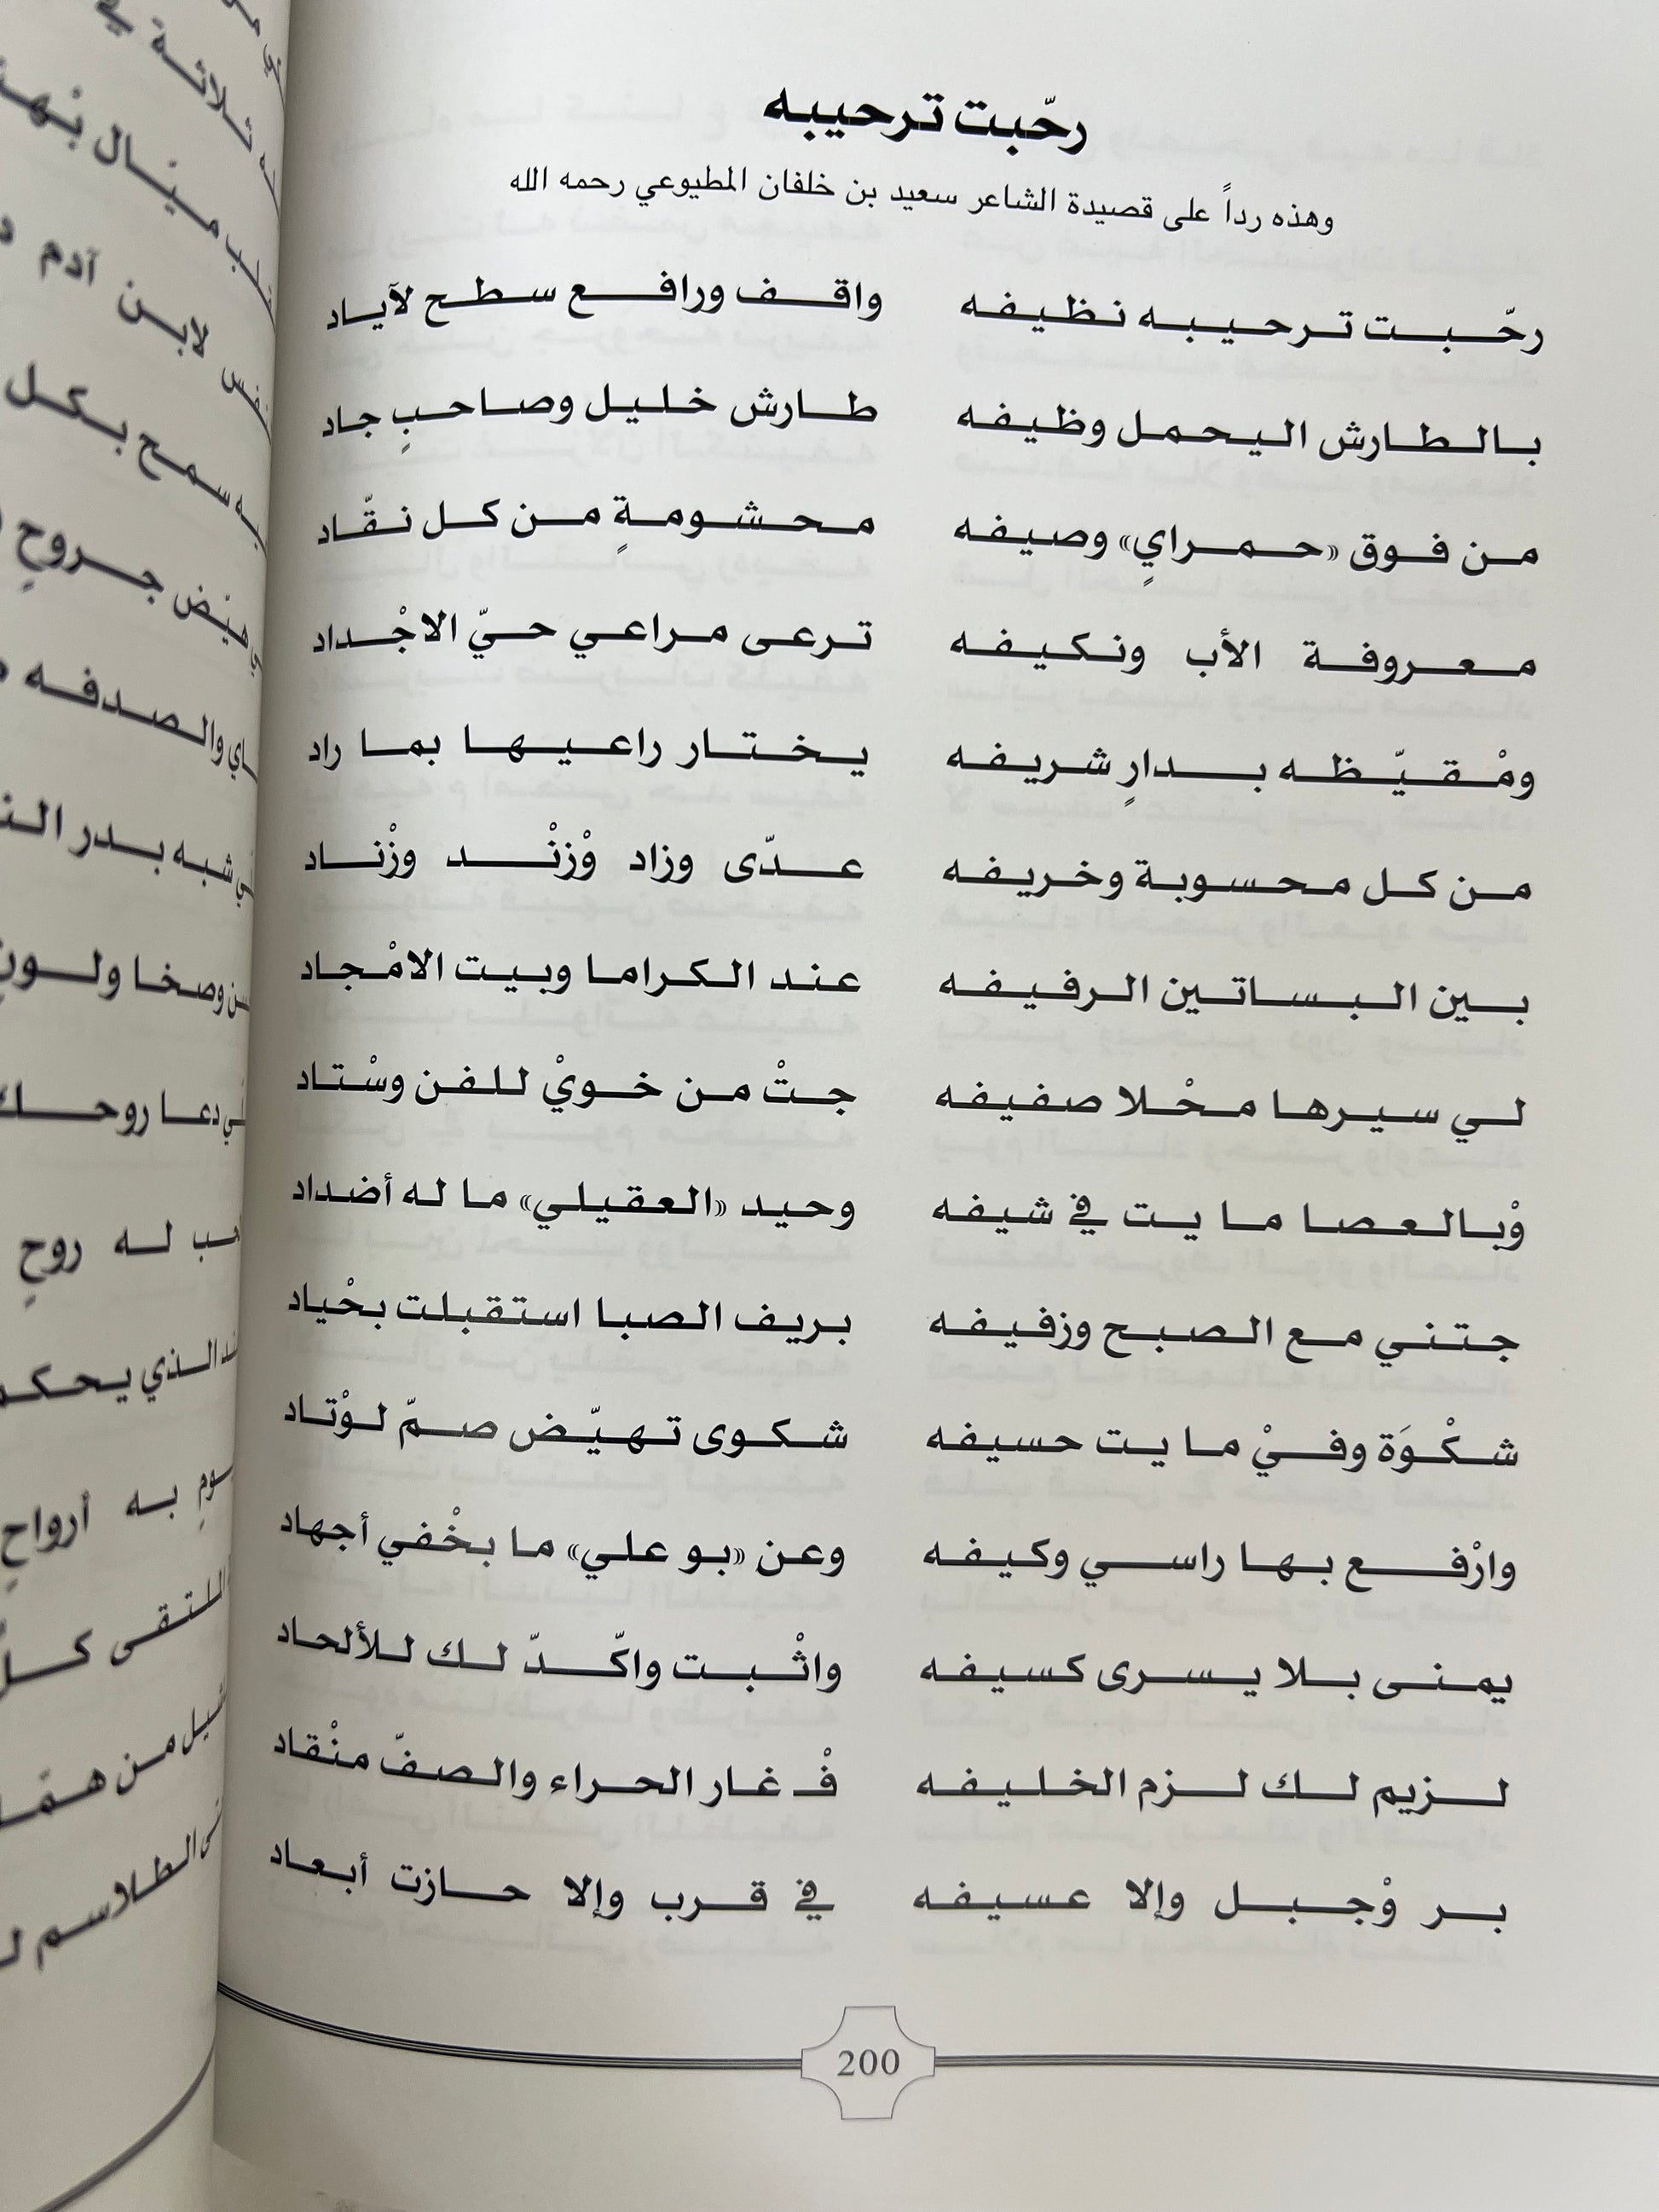 رحّبت ترحيبه
وهذه رداً على قصيدة الشاعر سعيد بن خلفان المطيوعي رحمه الله
رحّبت ترحيبه نظيفه واقف ورافع سطح لآياد
بالطارش اليحمل وظيفه طارش خليل وصاحبٍ جاد
من فوق «حمرايٍ» وصيفه محشومةٍ من كل نقّاد
معروفة الأب ونكيفه ترعى مراعي حيّ الاجْداد
ومْقيّظه بدارٍ شريفه يختار راعيها بما راد
من كل محسوبة وخريفه عدّى وزاد وْزنْد وزْناد
بين البساتين الرفيفه عند الكراما وبيت الامْجاد
لي سيرها محْلا صفيفه جتْ من خويْ للفن وسْتاد
وْبالعصا ما يت في شيفه وحيد «العقيلي» ما له أضداد
جتني مع الصبح وزفيفه بريف الصبا استقبلت بحْياد
شكْوَة وفيْ ما يت حسيفه شكوى تهيّض صمّ لوْتاد
وارْفع بها راسي وكيفه وعن «بو علي» ما بخْفي أجهاد
يمنى بلا يسرى كسيفه واثْبت واكّدّ لك للألحاد
لزيم لك لزم الخليفه فْ غار الحراء والصفّ منْقاد
بر وْجبل وإلا عسيفه في قرب وإلا حازت أبعاد
200